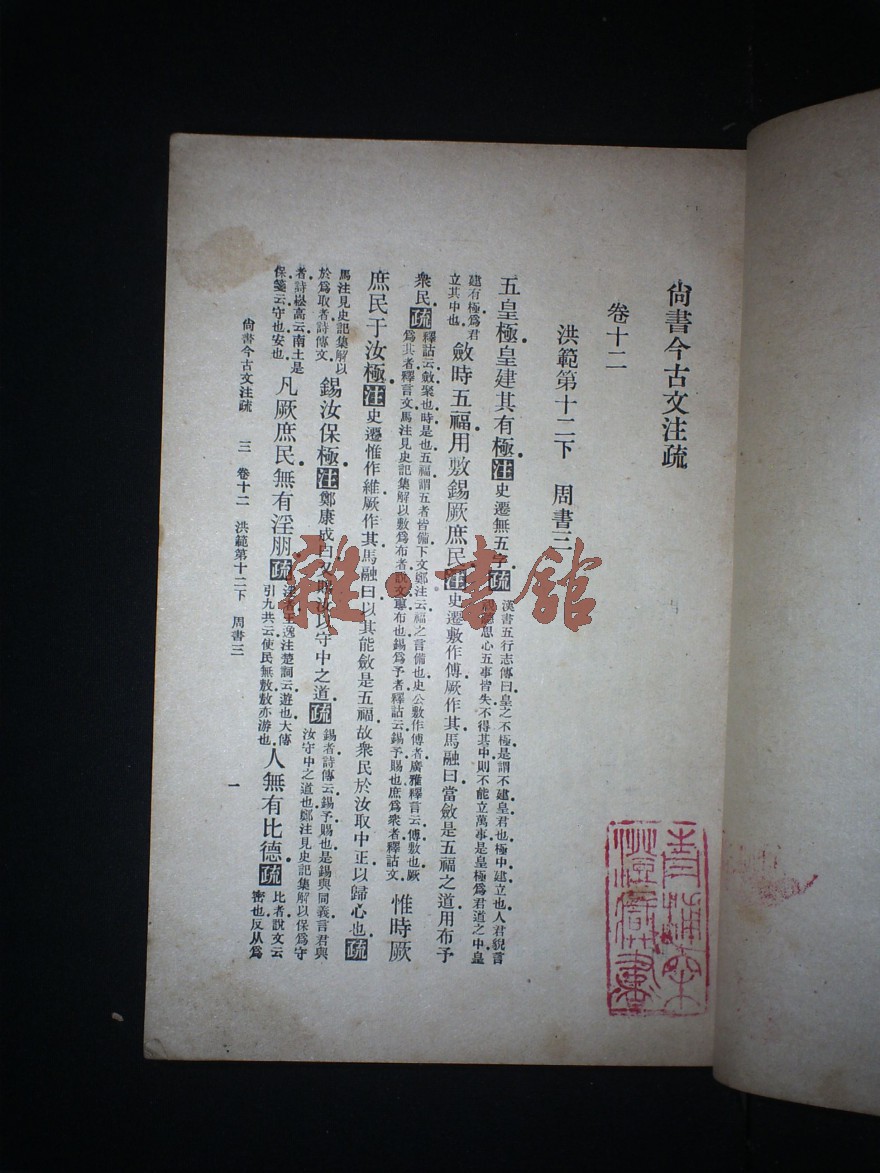 尙書今古文注疏
卷十二
洪範第十二下 周書三
五皇極皇建其有極注史遷無五字疏
漢書五行志傳曰皇之不極是謂不建皇君也極中建立也人君貌言
思心五事皆失不得其中則不能立萬事是皇極爲君道之中皇
建有極爲君
立其中也
斂時五福用敷錫厥庶民注史遷敷作傅厥作其馬融曰當斂是五福之道用布予
衆民疏
釋詁云斂聚也時是也五福謂五者皆備下文鄭注云福之言備也史公敷作傅者廣雅釋言云傅敷也厥
爲其者釋言文馬注見史記集解以敷爲布者說文尃布也錫爲予者釋詁云錫予賜也庶爲衆者釋詁文
惟時厥
庶民于汝極注史遷惟作維厥作其馬融曰以其能斂是五福故衆民於汝取中正以歸心也疏
馬注見史記集解以
於爲取者詩傳文
錫汝保極注鄭康成曰又賜汝以守中之道疏
錫者詩傳云錫予賜也是錫與同義言君與
汝守中之道也鄭注見史記集解以保爲守
者詩崧高云南土是
保箋云守也安也
凡厥庶民無有淫朋疏
淫者王逸注楚詞云遊也大傳
引九共云使民無敖敖亦游也
人無有比德疏
比者說文云
密也反从爲
尙書今古文注疏 三 卷十二 洪範第十二下 周書三 一
雜·書館